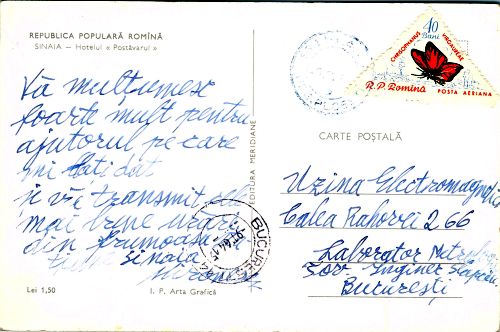 REPUBLICA POPULARĂ ROMÎNĂ
SINAIA — Hotelul « Postăvarul »
Vă mulțumesc
foarte mult pentru
ajutorul pe care
mi l-ați dat
și vă transmit cele
mai bune urări
din frumoasa
Sinaia
Lei 1,50
I. P. Arta Grafică
EDITURA MERIDIANE
BUCUREȘTI
10 Bani
CHRYSOPHANUS VIRGAUREAE
R.P. Romînă POSTA AERIANA
CARTE POȘTALĂ
Uzina Electromagnetica
Calea Rahovei 266
Laborator
Tov. Inginer
București